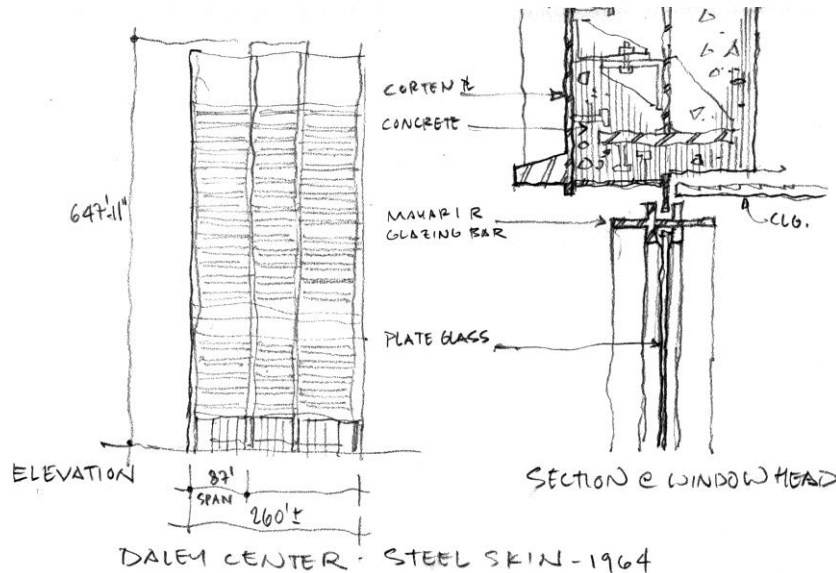 CORTEN ℄
CONCRETE
647'-11"
MAYARI R
GLAZING BAR
CLG.
PLATE GLASS
ELEVATION
87'
SPAN
260'±
SECTION @ WINDOW HEAD
DALEY CENTER · STEEL SKIN - 1964